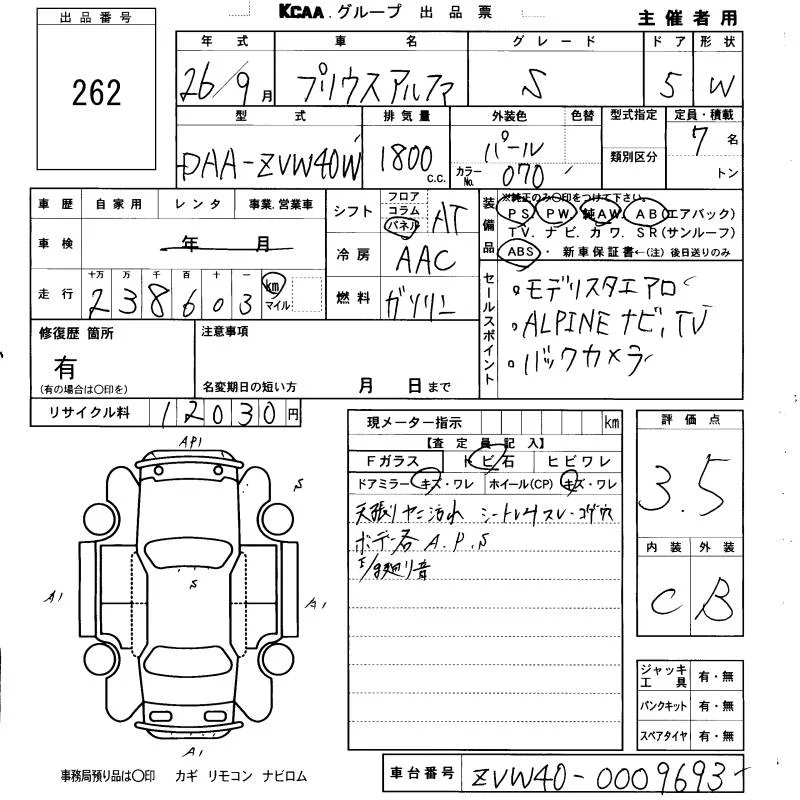 KCAA.グループ 出品票
主催者用
出品番号
262
年式 車名 グレード ドア 形状
26/9月 プリウスアルファ S 5 W
型式 排気量 外装色 色替 型式指定 定員・積載
DAA-ZVW40W 1800 c.c. パール カラーNo. 070 類別区分 7名 トン
車歴 自家用 レンタ 事業.営業車
車検 年 月
走行 十万 万 千 百 十 一
238603 km マイル
シフト フロア コラム パネル AT
冷房 AAC
燃料 ガソリン
装備品
※純正のみ○印をつけて下さい。
PS PW 純AW. AB(エアバック)
TV. ナビ. カワ. SR(サンルーフ)
ABS・ 新車保証書←(注) 後日送りのみ
セールスポイント
・モデリスタエアロ
・ALPINEナビ,TV
・バックカメラ
修復歴 箇所
有
(有の場合は○印を)
注意事項
名変期日の短い方 月 日まで
リサイクル料 12030円
現メーター指示 km
【査定員記入】
Fガラス トビ石 ヒビワレ
ドアミラー キズ・ワレ ホイール(CP) キズ・ワレ
天張リヤニ汚れ シートレサスレ・コゲ穴
ボデー各 A.P.S
E/g廻り音
評価点
3.5
内装 外装
C B
AP1
S
S
A1
A1
A1
ジャッキ工具 有・無
パンクキット 有・無
スペアタイヤ 有・無
事務局預り品は○印 カギ リモコン ナビロム
車台番号 ZVW40-0009693